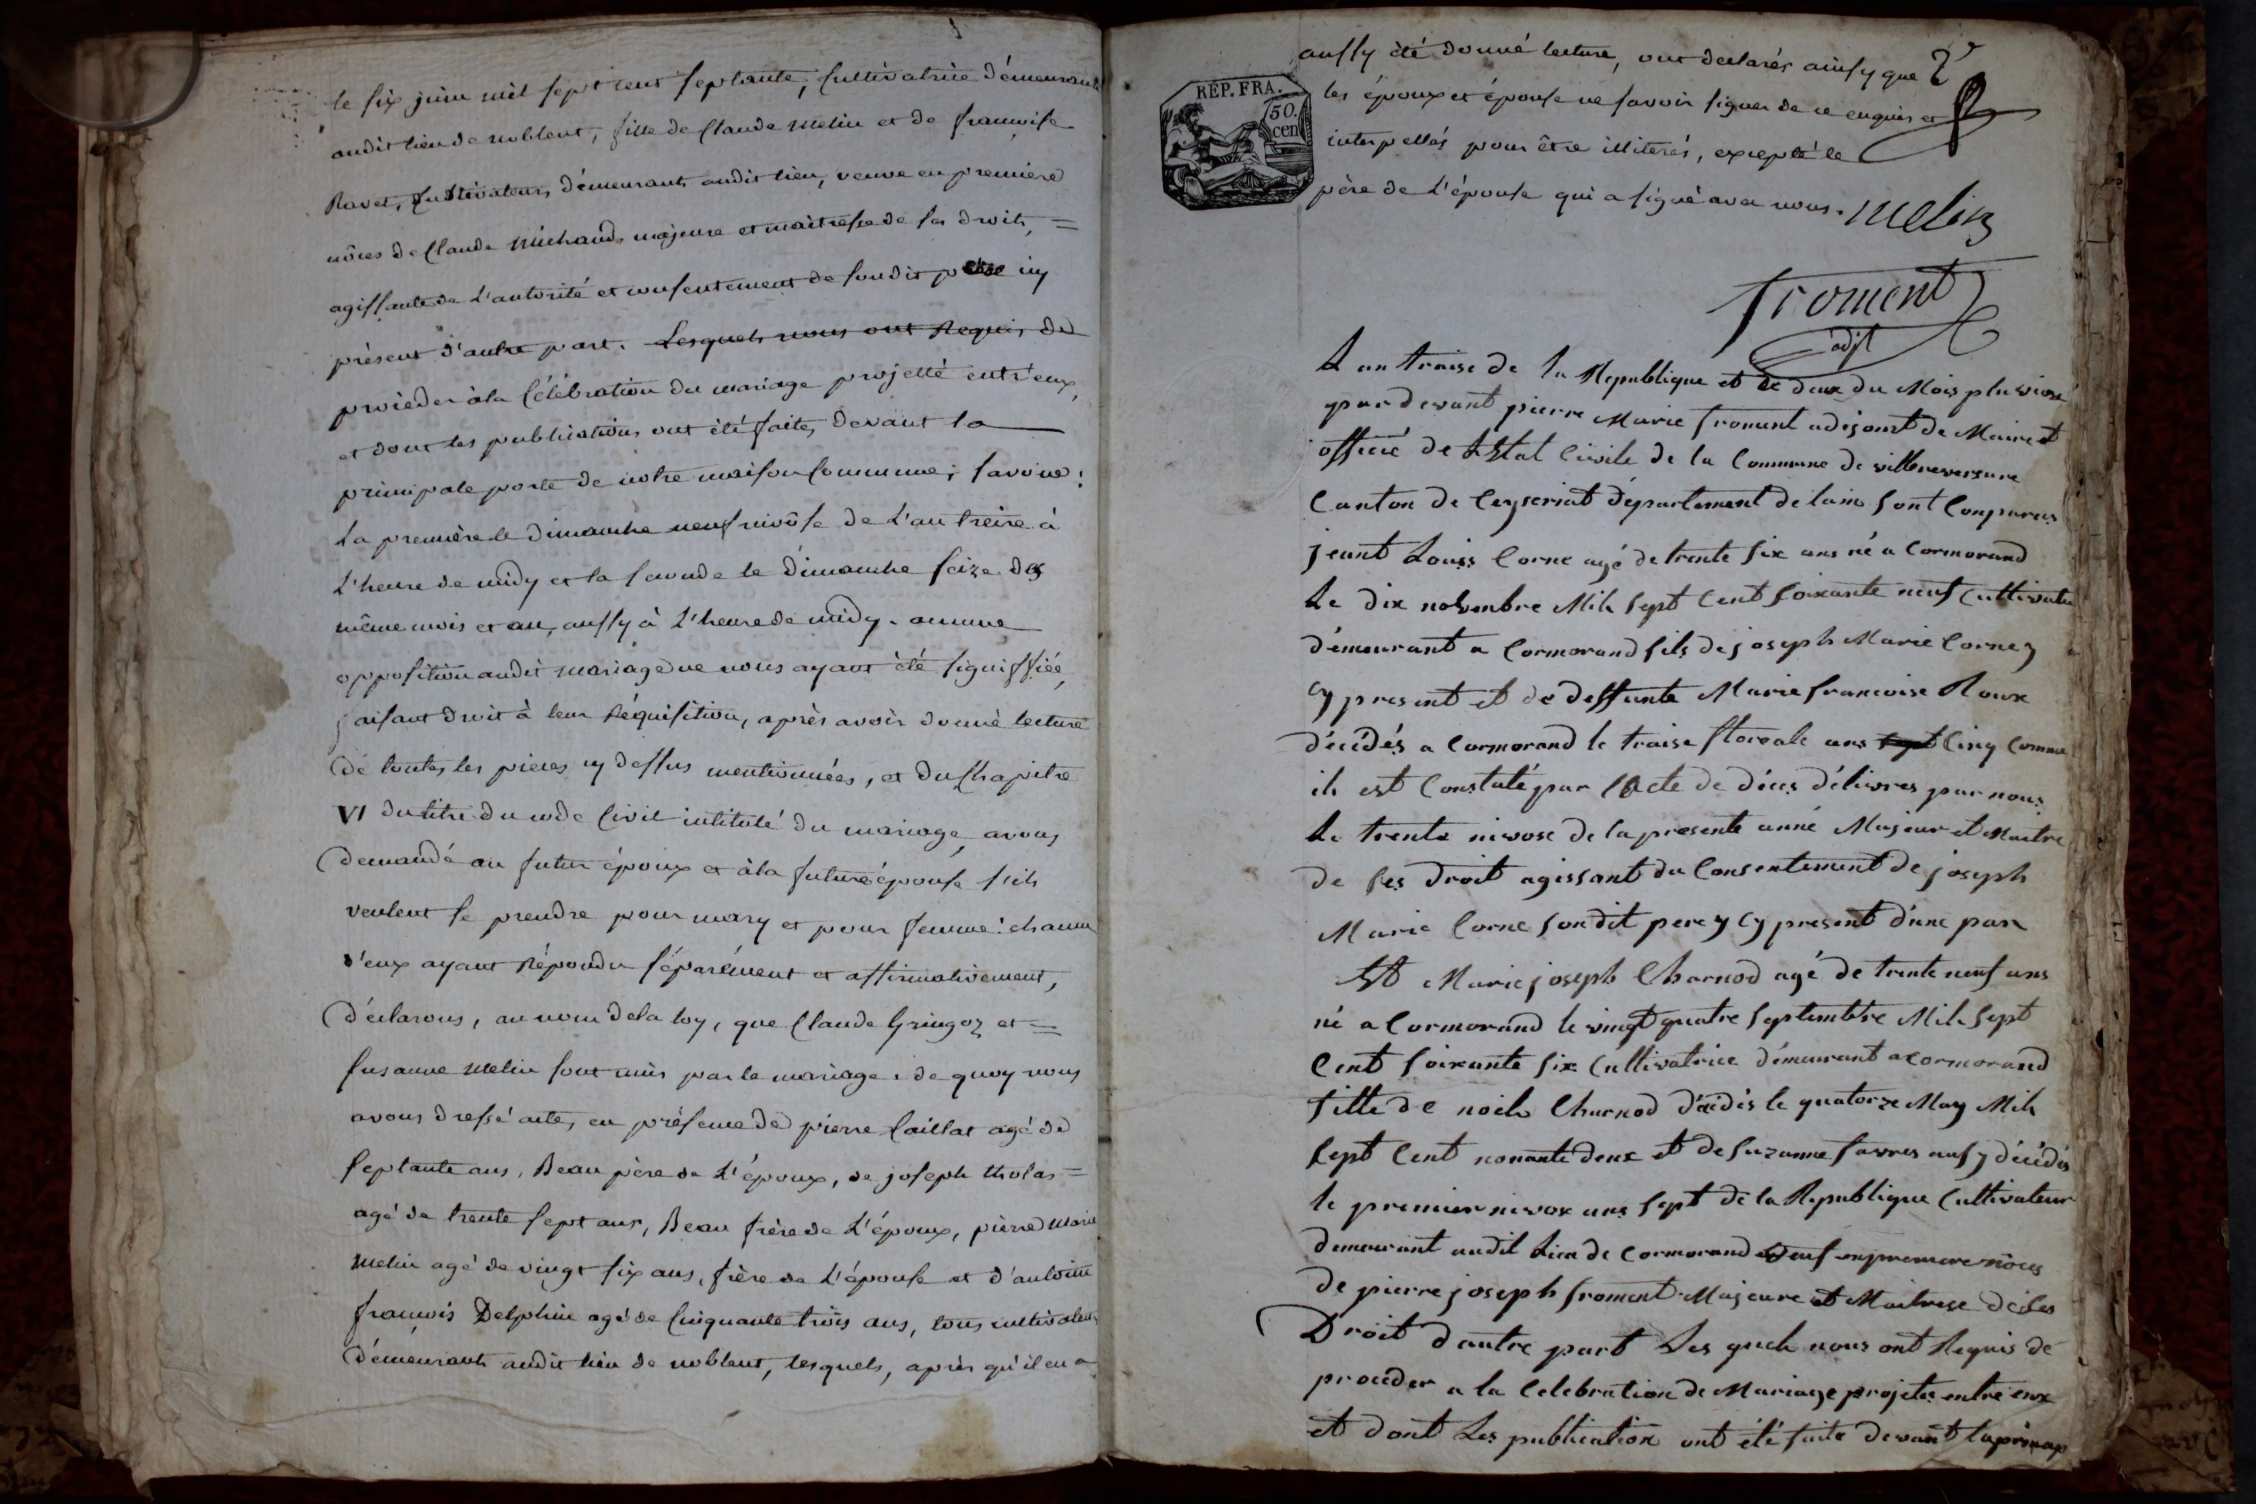 le six juin mil sept cent septante, Cultivatrice démeurant
audit lieu de noblent, fille de Claude Melin et de françoise
Ravet, Cultivateurs, démeurants audit lieu, veuve en première
nôces de Claude Michaud, majeure et maitresse de ses droits, =
agissante de l'autorité et consentement de sondit père icy
présent d'autre part. Lesquels nous ont Requis de
procéder à la Célébration du mariage projetté entr'eux,
et dont les publications ont été faites, devant la
principale porte de notre maison Commune; savoire:
la première le dimanche neuf nivôse de l'an treize à
l'heure de midy et la seconde le dimanche seize des
même mois et an, aussy à l'heure de midy. aucune
opposition audit mariage ne nous ayant été signiffiée,
faisant droit à leur Réquisition, après avoir donné lecture
de toutes les pièces cy dessus mentionnées, et du Chapitre
VI du titre du code Civil intitulé du mariage, avons
demandé au futur époux et à la future épouse s'ils
veulent se prendre pour mary et pour femme: chacun
d'eux ayant Répondu séparément et affirmativement,
déclarons, au nom de la loy, que Claude Gringoz et =
susanne Melin sont unis par le mariage: de quoy nous
avons dressé acte, en présence de pierre Caillat agé de
septante ans, Beau père de l'époux, de joseph tholas =
agé de trente sept ans, Beau frère de l'époux, pierre Marie
Melin agé de vingt six ans, frère de l'épouse et d'antoine
françois Delphin agé de Cinquante trois ans, tous cultivateurs
démeurants audit lieu de noblent, lesquels, après qu'il en a
aussy été donné lecture, ont declarés ainsy que
les époux et épouse ne savoir signer de ce enquis et
interpellés pour être illiterés, excepté le
père de l'épouse qui a signé avec nous.
RÉP. FRA.
50.
cen
Melin
froment
adjt
Lan traise de la Republique et le deux du Mois pluviose
pardevant pierre Marie froment adjoint de Maire et
officié de lEtat Civile de la Commune de villereversure
Canton de Ceyseriat département de lain sont Comparus
jeant Louis Corne agé de trente six ans né a Cormorand
Le dix novembre Mile sept Cent soixante neuf Cultivateur
démeurant a Cormorand fils de joseph Marie Corne y
cy present et de deffunte Marie francoise Roux
décédés a Cormorand le traise floreale ans sept Cinq Comme
ile est Constaté par lActe de déces délivrés par nous
Le trente nivose de la presente anné Majeur et Maitre
de ses Droit agissant du Consentement de joseph
Marie Corne son dit pere y cy present dune part
Et Marie joseph Charnod agé de trente neuf ans
né a Cormorand le vingt quatre septembre Mile sept
Cent soixante six Cultivatrice démeurant a Cormorand
fille de noile Charnod décédés le quatorze May Mile
sept Cent nonante deux et de suzanne favres ausy décédés
le premier nivox ans sept de la Republique Cultivateur
demeurant audit Lieu de Cormorand veuf en premiere nôces
de pierre joseph froment Majeure et Maitrese de ses
Droit dautre part Les quels nous ont Requis de
procéder a la Celebration de Mariage projetés entre eux
et dont Les publication ont été faite devant la princip